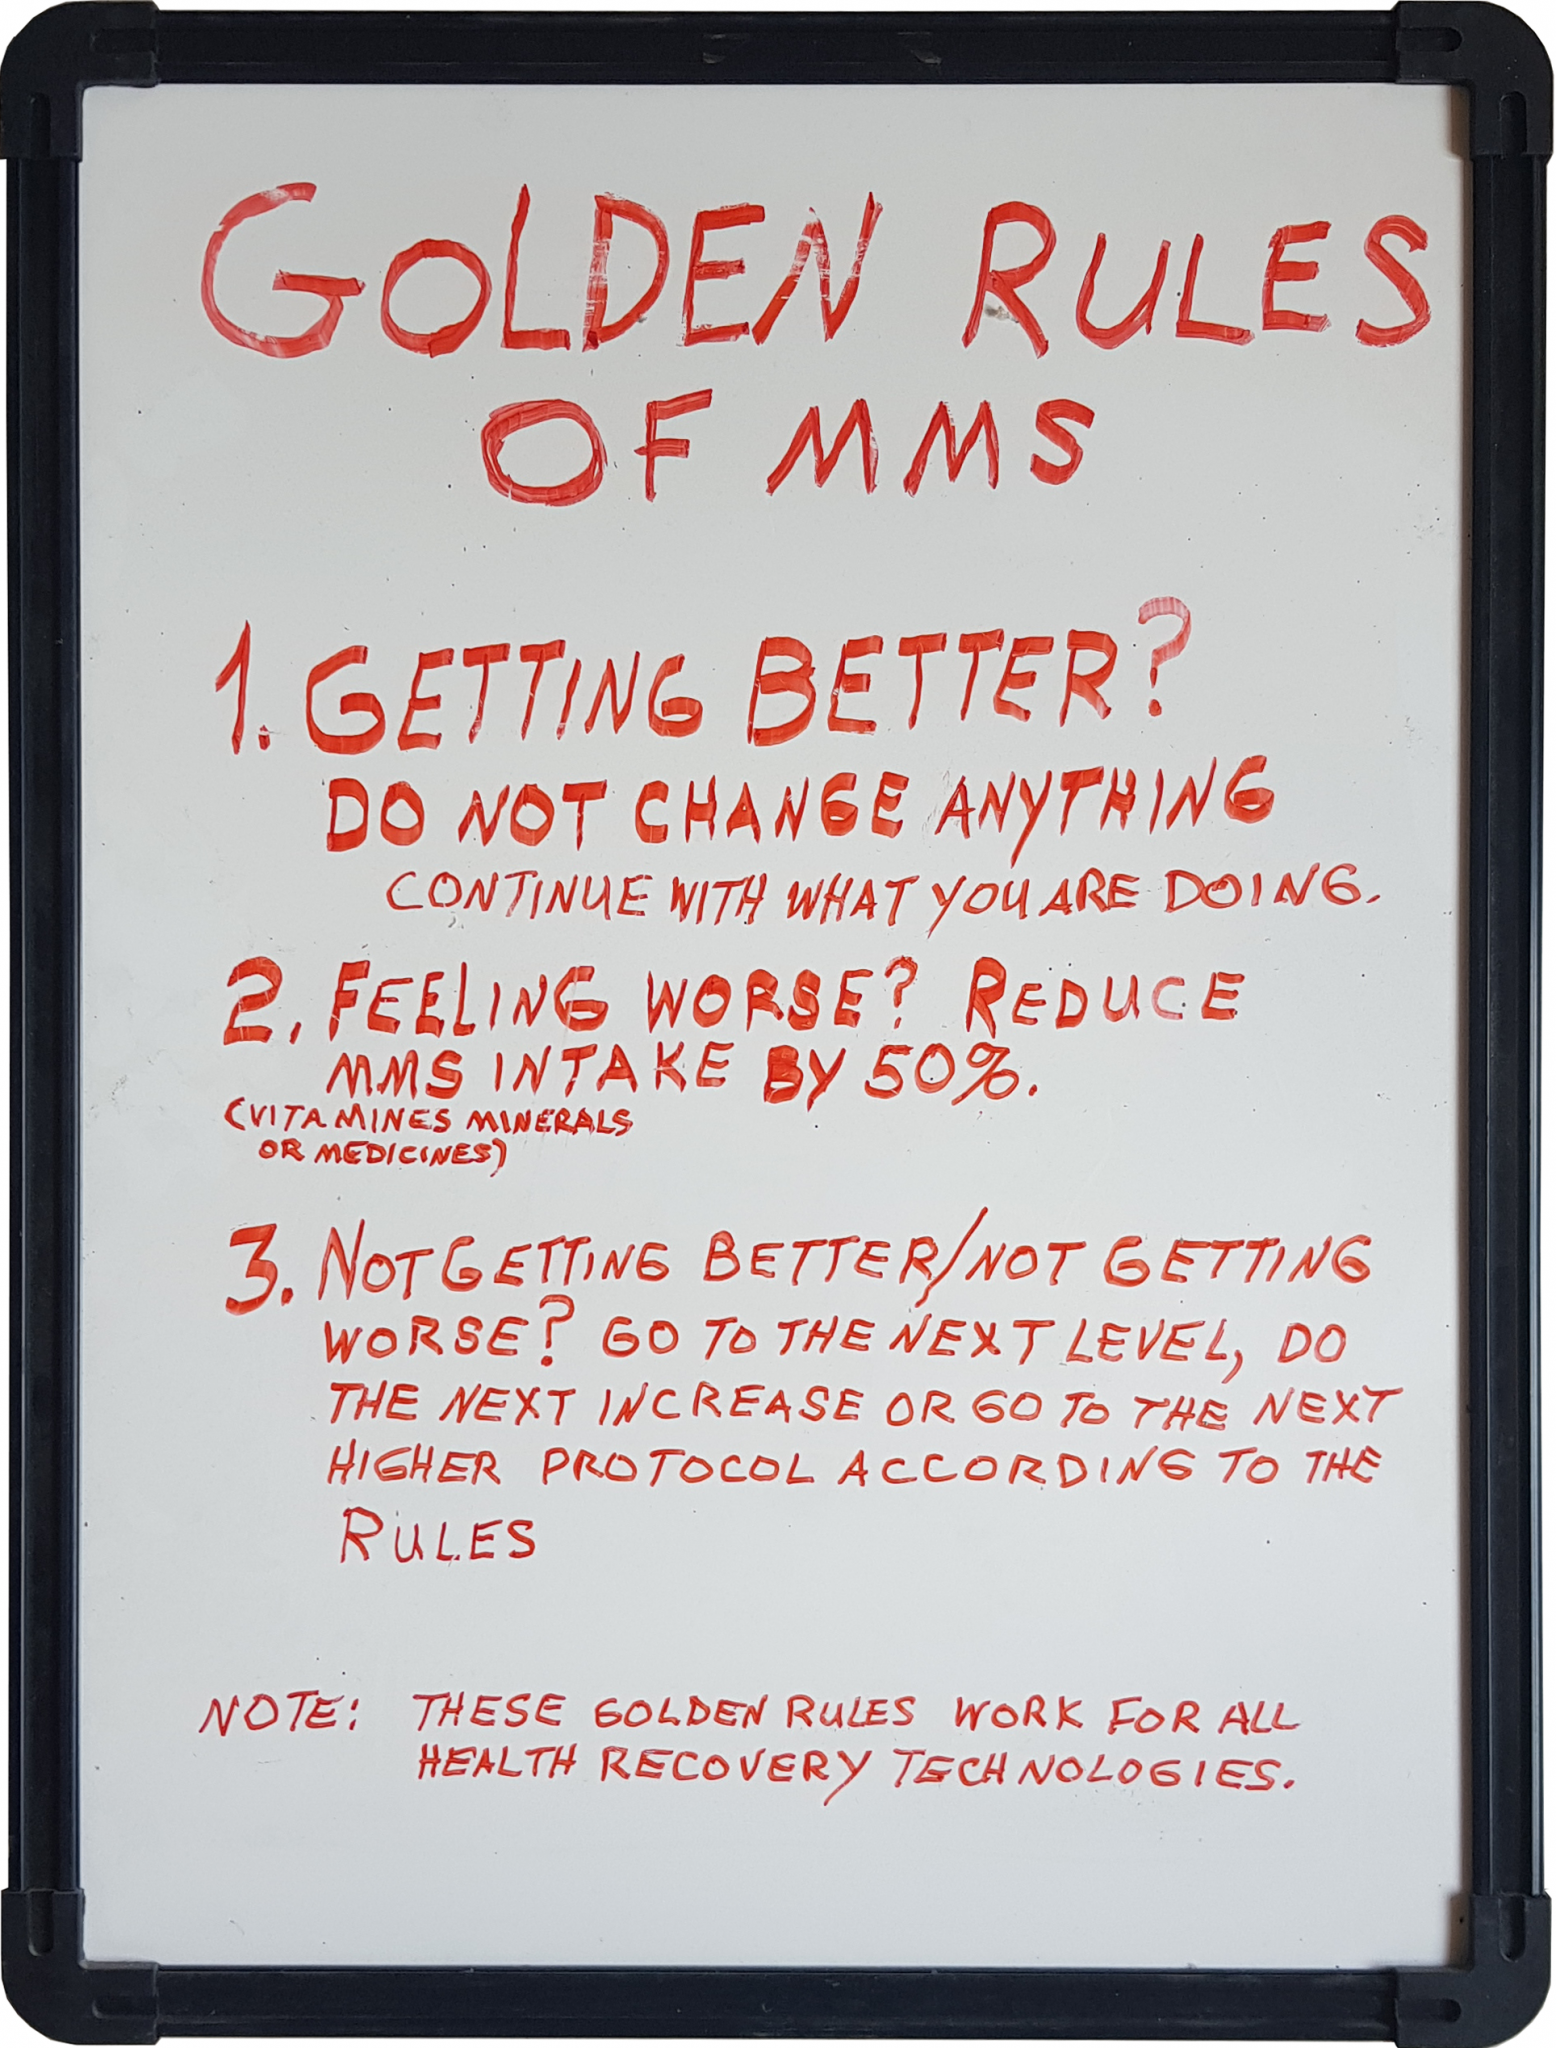 GOLDEN RULES
OF MMS
1. GETTING BETTER?
DO NOT CHANGE ANYTHING
CONTINUE WITH WHAT YOU ARE DOING.
2. FEELING WORSE? REDUCE
MMS INTAKE BY 50%.
(VITAMINES MINERALS
OR MEDICINES)
3. NOT GETTING BETTER/NOT GETTING
WORSE? GO TO THE NEXT LEVEL, DO
THE NEXT INCREASE OR GO TO THE NEXT
HIGHER PROTOCOL ACCORDING TO THE
RULES
NOTE: THESE GOLDEN RULES WORK FOR ALL
HEALTH RECOVERY TECHNOLOGIES.